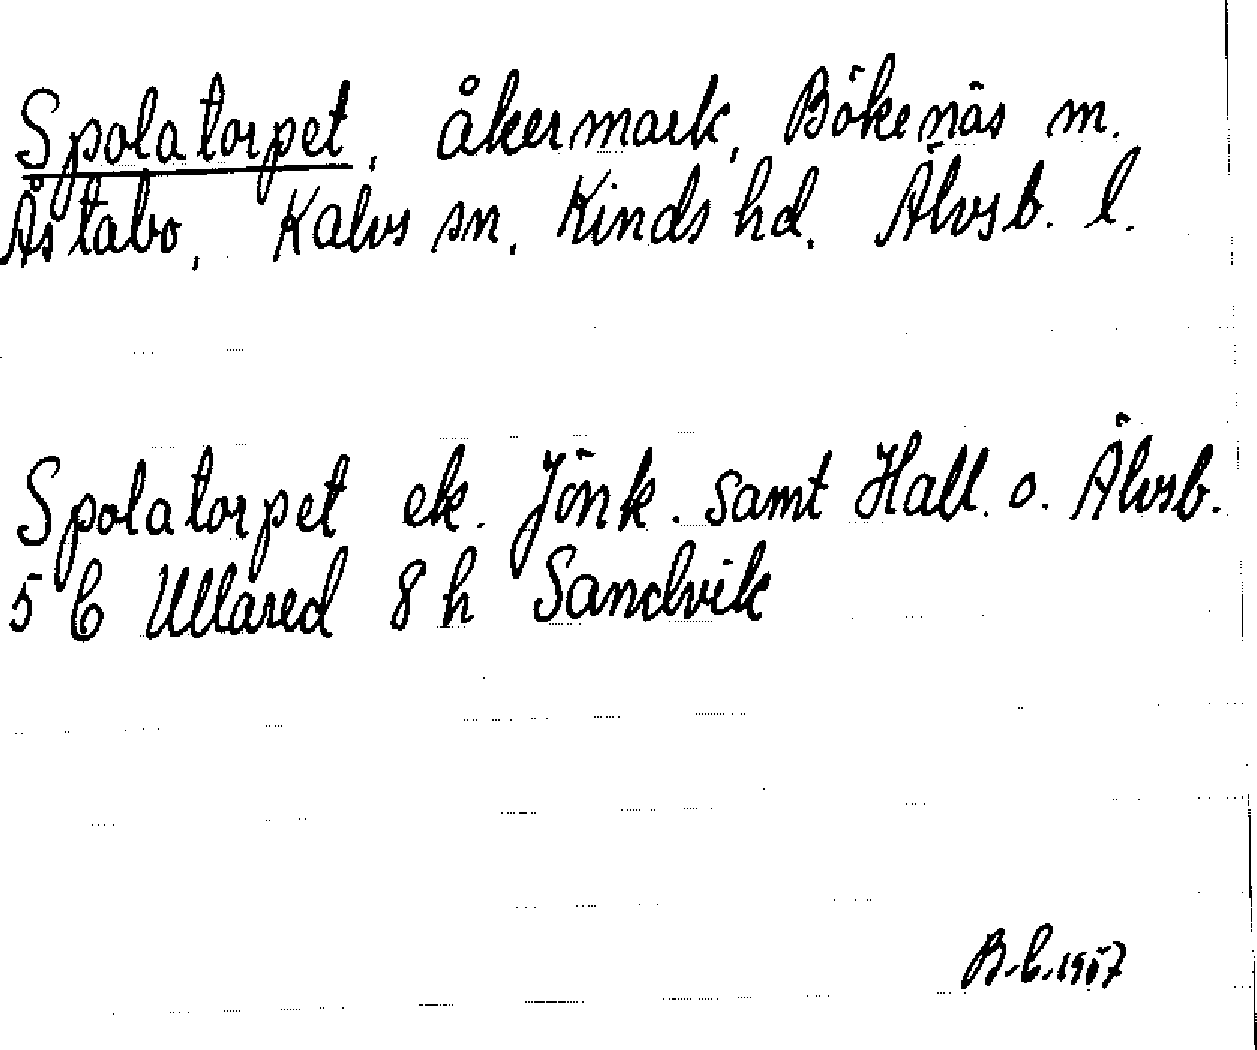 Spolatorpet, åkermark, Bökenäs m.
Åstabo, Kalvs sn, Kinds hd, Älvsb. l.
Spolatorpet ek. Jönk. samt Hall. o. Älvsb.
5 C Ullared 8 h Sandvik
B.C. 1957